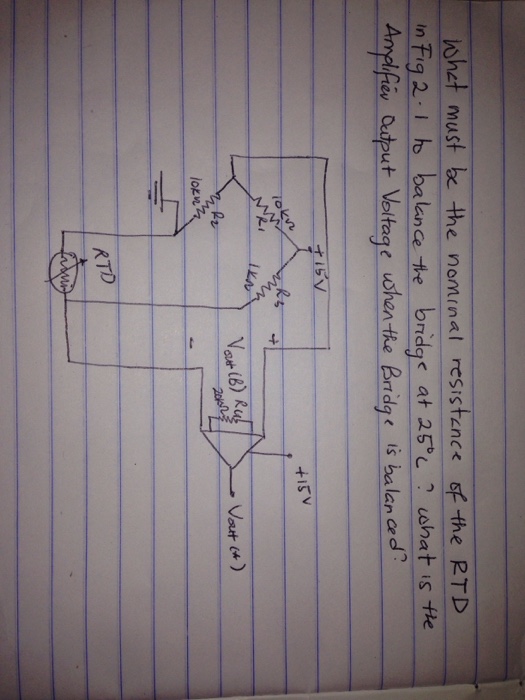 What must be the nominal resistance of the RTD
in Fig 2.1 to balance the bridge at 25°C? what is the
Amplifier Output Voltage when the Bridge is balanced?
+15V
10KΩ
R1
R3
1KΩ
R2
10KΩ
+15V
+
Vout(B)
20KΩ
Vout(A)
-
RTD